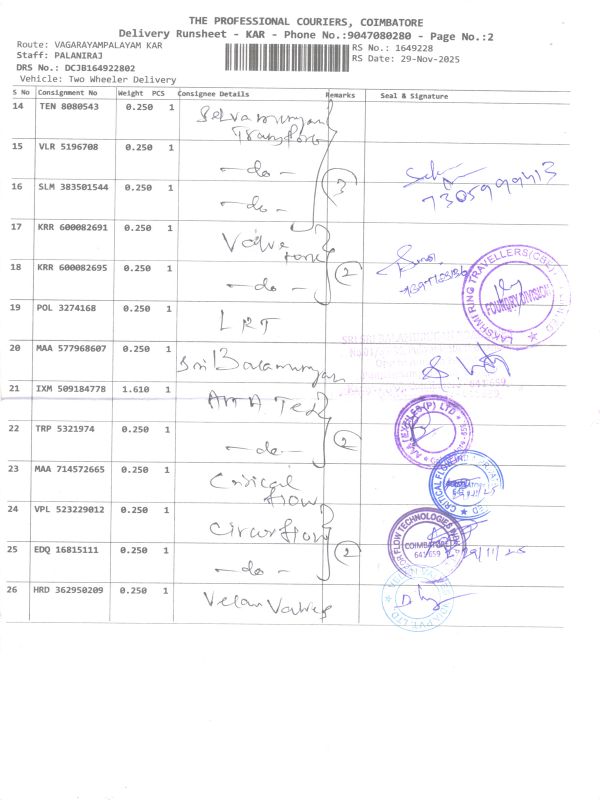 THE PROFESSIONAL COURIERS, COIMBATORE
Delivery Runsheet - KAR - Phone No.:9047080280 - Page No.:2
Route: VAGARAYAMPALAYAM KAR
RS No.: 1649228
Staff: PALANIRAJ
RS Date: 29-Nov-2025
DRS No.: DCJB164922802
Vehicle: Two Wheeler Delivery
S No Consignment No Weight PCS Consignee Details Remarks Seal & Signature
14 TEN 8080543 0.250 1 Selvamurugan
Transport
15 VLR 5196708 0.250 1 -do-
3
16 SLM 383501544 0.250 1 -do-
17 KRR 600082691 0.250 1 Valve
18 KRR 600082695 0.250 1 -do- 2
LAKSHMI RING TRAVELLERS(CBE)
FOUNDRY DIVISION
19 POL 3274168 0.250 1 LRT
20 MAA 577968607 0.250 1 Sri Balamurugan
21 IXM 509184778 1.610 1
22 TRP 5321974 0.250 1 -do- 2
23 MAA 714572665 0.250 1 Critical
flow
24 VPL 523229012 0.250 1 Circor flow
FLOW TECHNOLOGIES
COIMBATORE
641 659
25 EDQ 16815111 0.250 1 -do- 2
26 HRD 362950209 0.250 1 Velan Valves